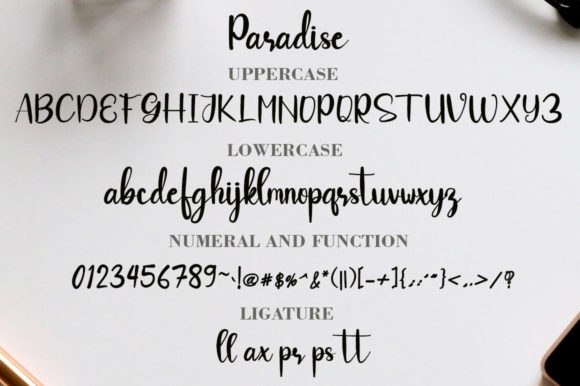 Paradise
UPPERCASE
ABCDEFGHIJKLMNOPQRSTUVWXYZ
LOWERCASE
abcdefghijklmnopqrstuvwxyz
NUMERAL AND FUNCTION
0123456789~`!@#$%^&*(||)[-+]{,:;·"}<..>/?
LIGATURE
ll ax pr ps tt